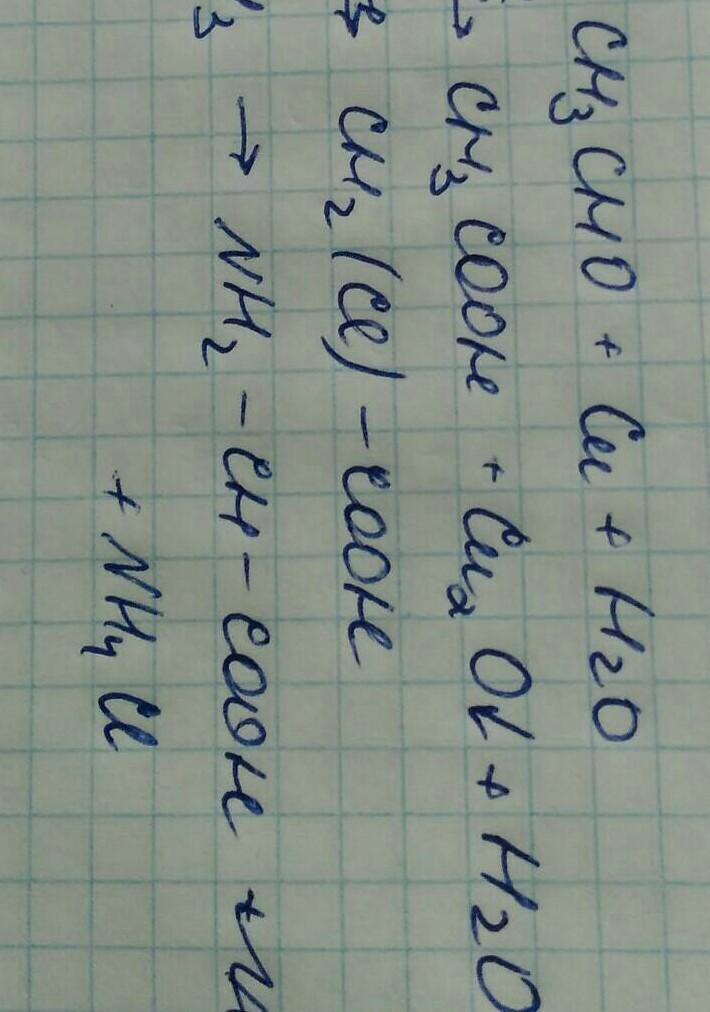 CH₃CHO + Cu + H₂O
→ CH₃COOH + Cu₂O↓ + H₂O
CH₂(Cl)-COOH
₃ → NH₂-CH-COOH +
+ NH₄Cl